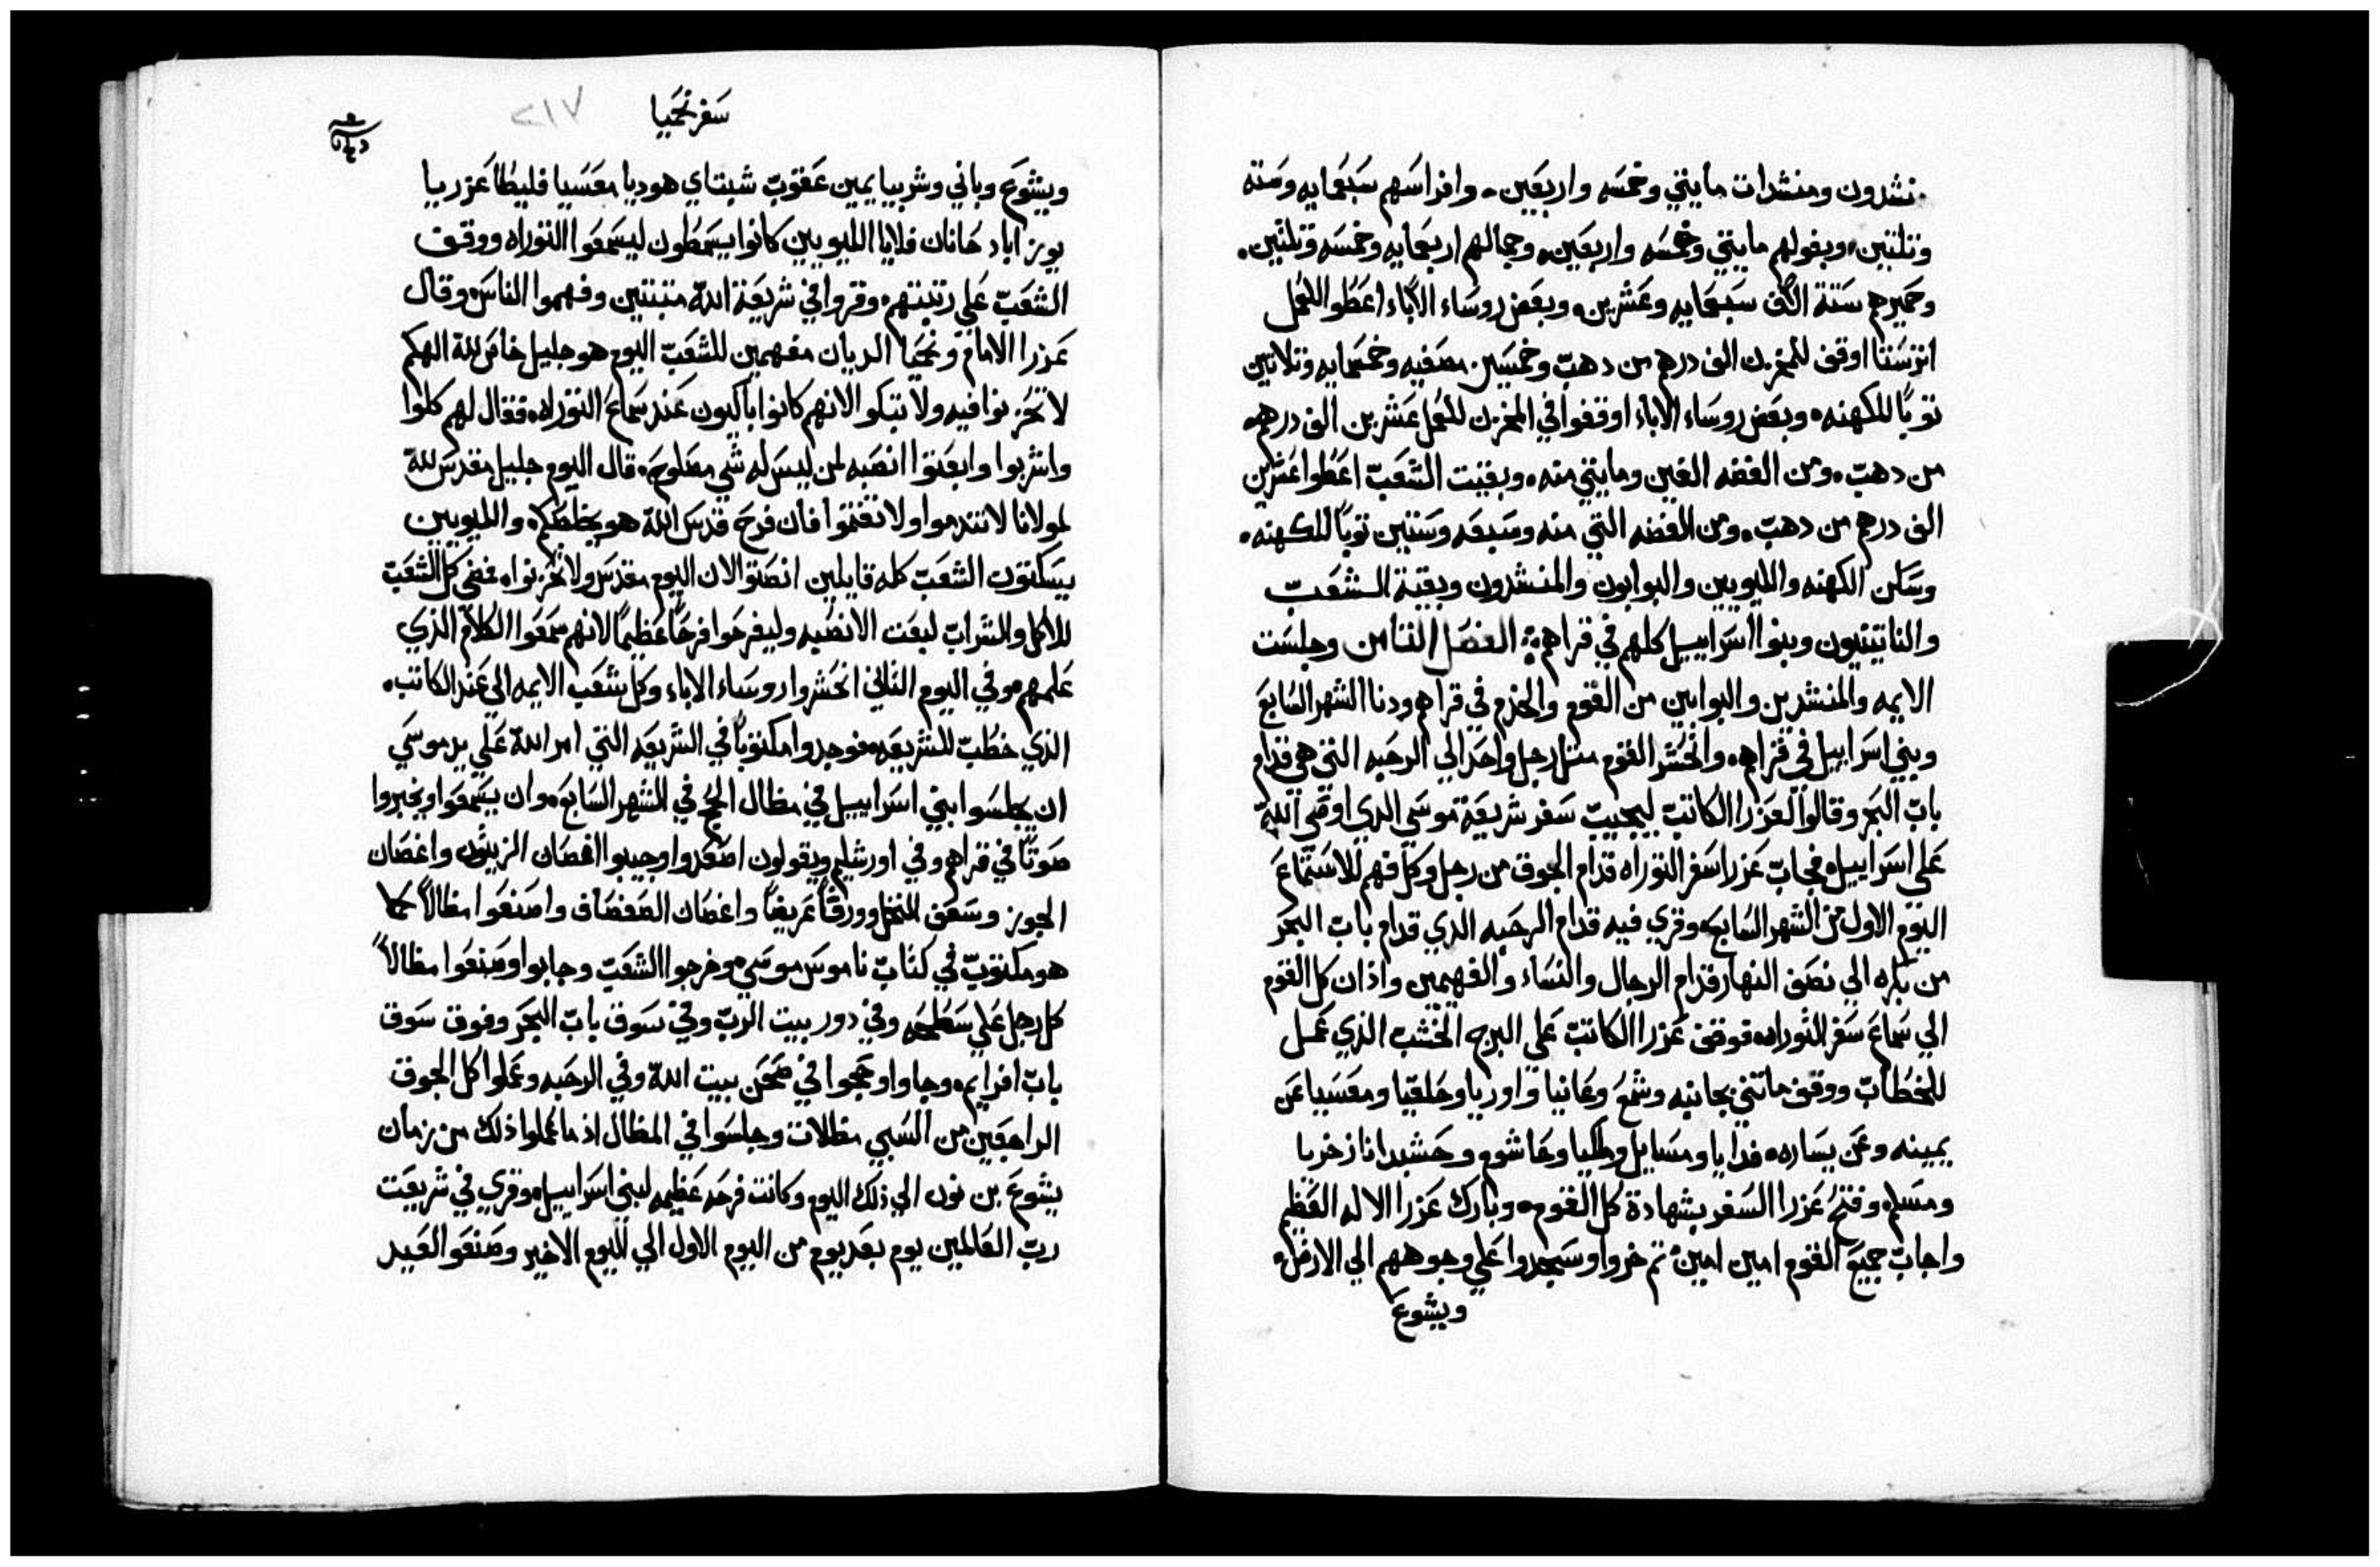 منشدون ومنشدات مايتي وخمسه واربعين. وافراسهم سبعمايه وسته
وتلتين. وبغولهم مايتي وخمسه واربعين. وجمالهم اربعمايه وخمسه وتلتين.
وحميرهم ستة الاف سبعمايه وعشرين. وبعض روساء الاباء اعطوا للعمل
اترستتا اوقف للمخزن الف درهم من دهب وخمسين مصفيه وخمسمايه وتلاتين
توبا للكهنه. وبعض روساء الاباء اوقفوا في المخزن للعمل عشرين الف درهم
من دهب. ومن الفضه الفين ومايتي منه. وبقيت الشعب اعطوا عشرين
الف درهم من دهب. ومن الفضه التي منه وسبعه وستين توبا للكهنه.
وسكن الكهنه والليويين والبوابون والمنشدون وبقية الشعب
والناتينيون وبنوا اسراييل كلهم في قراهم. الفصل التامن وجلست
الايمه والمنشدين والبوابين من القوم والخدم في قراهم ودنا الشهر السابع
وبني اسراييل في قراهم. وانحشر القوم متل رجل واحد الي الرحبه التي هي قدام
باب البحر وقالوا لعزرا الكاتب ليجيب سفر شريعة موسي الدي اوصي الله
علي اسراييل. فجاب عزرا سفر التوراه قدام الجوق من رجل وكل فهم للاستماع
اليوم الاول من الشهر السابع. وقري فيه قدام الرحبه الذي قدام باب البحر
من بكره الي نصف النهار قدام الرجال والنساء والفهيمين واذان كل القوم
الي سماع سفر التوراه. فوقف عزرا الكاتب علي البرج الخشب الذي عمل
للخطاب ووقف ماتتي بجانبه وشمع وعانيا واوريا وحلقيا ومعسيا عن
يمينه وعن يساره. فدايا ومسايل وملكيا وحاشوم وحشبدانا زخريا
ومسلم. وفتح عزرا السفر بشهادة كل القوم. وبارك عزرا الاله العظيم
واجاب جميع القوم امين امين. تم خروا وسجدوا علي وجوههم الي الارض.
ويشوع
سفر نحميا
٢١٧
ويشوع وباني وشربيا يمين عقوب شبتاي هوديا معسيا فليطا عزريا
يوزاباد حانان فلايا الليويين كانوا يسمطون ليسمعوا التوراه ووقف
الشعب علي رتبتهم. وقروا في شريعة الله متبتين وفهموا الناس. وقال
عزرا الامام ونحميا الريان مفهمين للشعب اليوم هو جليل خاص لله الهكم
لا تحزنوا فيه ولا تبكوا لانهم كانوا باكيون عند سماع التوراه. فقال لهم كلوا
واشربوا وابعتوا انصبه لمن ليس له شي مصلوح. قال اليوم جليل مقدس لله
لمولانا لا تندموا ولا تغتموا فان فرح قدس الله هو يخلصكم. والليويين
يسكتون الشعب كله قايلين انصتوا لان اليوم مقدس ولا تحزنوا. فمضي كل الشعب
للاكل والشراب لبعت الانصبه وليفرحوا فرحا عظيما لانهم سمعوا الكلام الذي
علمهم. وفي اليوم التاني انحشروا روساء الاباء وكل شعب الايمه الي عند الكاتب.
الذي خطب للشريعه. فوجدوا مكتوبا في الشريعه التي امر الله علي يد موسي
ان يجلسوا بني اسراييل في مظال الحج في الشهر السابع. وان يسمعوا ويخبروا
صوتا في قراهم وفي اورشليم ويقولون اصعدوا وجيبوا اغصان الزيتون واغصان
الجوز وسعف النخل وورقا عريضا واغصان الصفصاف واصنعوا مظالا كما
هو مكتوب في كتاب ناموس موسي. وخرجوا الشعب وجابوا وصنعوا مظالا
كل رجل علي سطحه وفي دور بيت الرب وفي سوق باب البحر وفوق سوق
باب افرايم. وجاوا وحجوا في صحن بيت الله وفي الرحبه وعملوا كل الجوق
الراجعين من السبي مظلات وجلسوا في المظال اذ ما عملوا ذلك من زمان
يشوع بن نون الي ذلك اليوم وكانت فرحه عظيمه لبني اسراييل. وقري في شريعت
رب العالمين يوم بعد يوم من اليوم الاول الي اليوم الاخير وصنعوا العيد